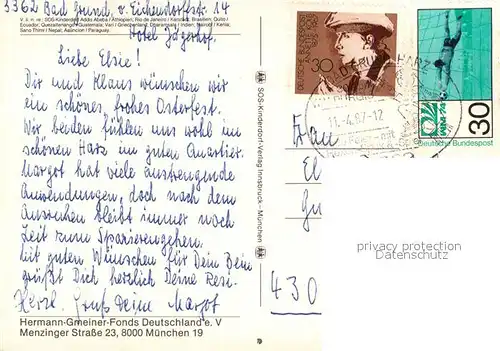 3362 Bad Grund, v. Eichendorffstr. 14
Hotel Jägerhof.
V. li. n. re.: SOS-Kinderdorf Addis Abeba / Äthiopien; Rio de Janeiro / Brasilien; Quito /
Ecuador; Quezaltenango / Guatemala; Vari / Griechenland; Dharamsala / Indien; Nairobi / Kenia;
Sano Thimi / Nepal; Asuncion / Paraguay.
Liebe Elsie!
Dir und Klaus wünschen wir
ein schönes, frohes Osterfest.
Wir beiden fühlen uns wohl im
schönen Harz im guten Quartier.
Margot hat viele anstrengende
Anwendungen, doch nach dem
Ausruhen bleibt immer noch
Zeit zum Spazierengehen.
Mit guten Wünschen für Dein Bein
grüßt Dich herzlich Deine Resi.
Herzl. Gruß Deine Margot
Hermann-Gmeiner-Fonds Deutschland e. V
Menzinger Straße 23, 8000 München 19
SOS-Kinderdorf-Verlag Innsbruck - München
30
BAD GRUND HARZ
11.-4.87-12
30
Deutsche Bundespost
Frau
El
Gu
430
privacy protection
Datenschutz